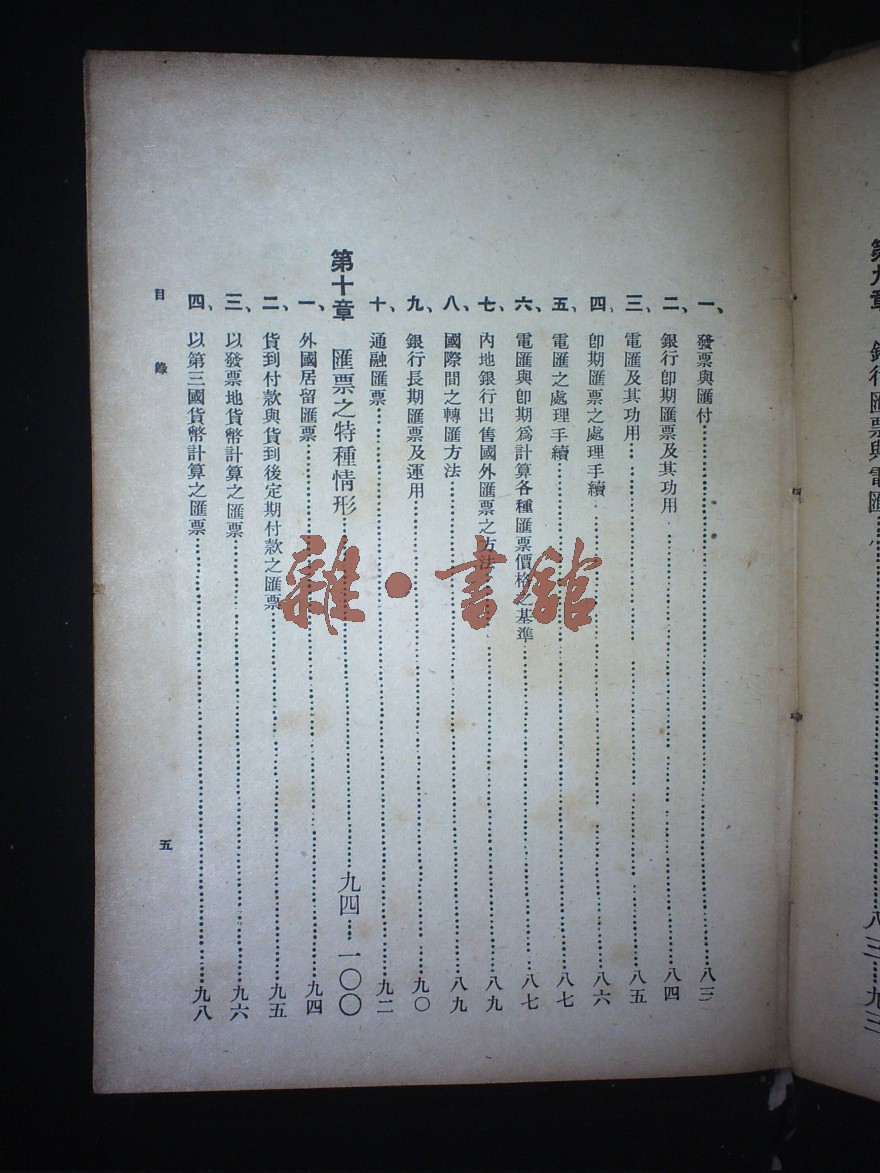 第九章　銀行匯票與電匯……八三……九三
一、發票與匯付……八三
二、銀行卽期匯票及其功用……八四
三、電匯及其功用……八五
四、卽期匯票之處理手續……八六
五、電匯之處理手續……八七
六、電匯與卽期爲計算各種匯票價格之基準……八七
七、內地銀行出售國外匯票之方法……八九
八、國際間之轉匯方法……八九
九、銀行長期匯票及運用……九〇
十、通融匯票……九二
第十章　匯票之特種情形……九四……一〇〇
一、外國居留匯票……九四
二、貨到付款與貨到後定期付款之匯票……九五
三、以發票地貨幣計算之匯票……九六
四、以第三國貨幣計算之匯票……九八
目錄
五
雜·書館